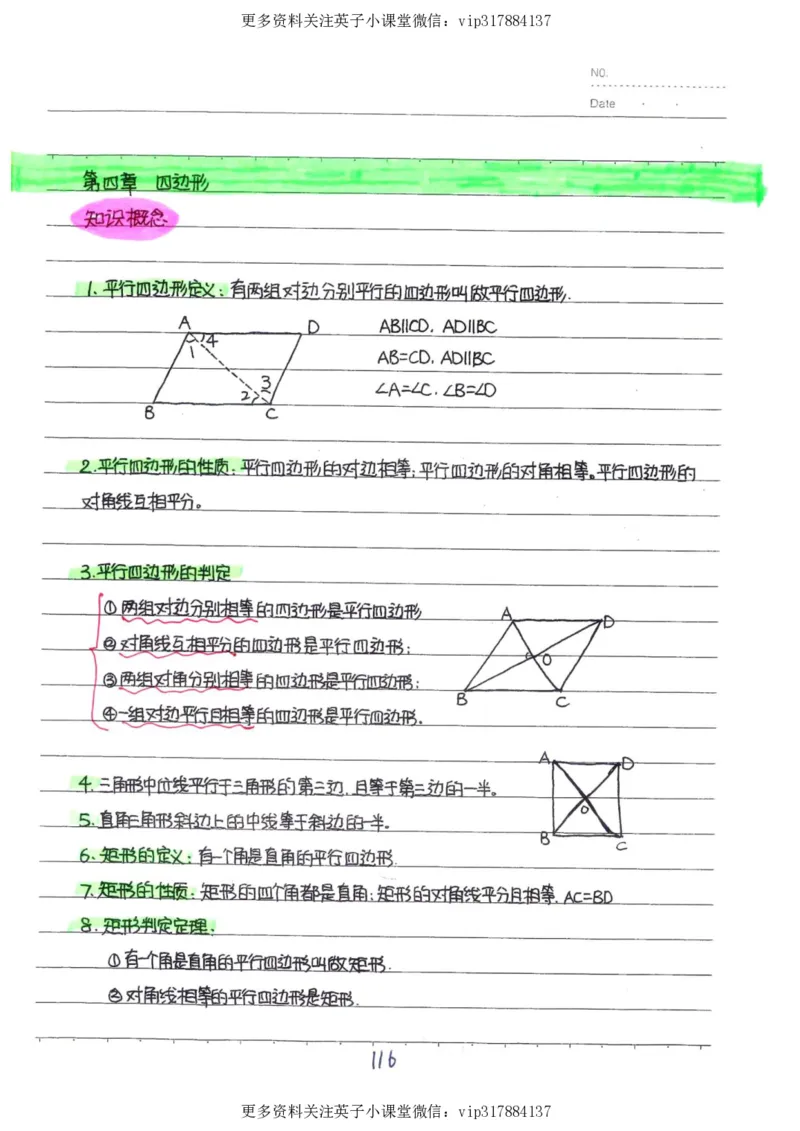 更多资料关注英子小课堂微信：vip317884137
NO.
Date
第四章 四边形
知识概念
1、平行四边形定义：有两组对边分别平行的四边形叫做平行四边形.
A
D
1
4
3
2
B
C
AB∥CD，AD∥BC
AB=CD，AD∥BC
∠A=∠C，∠B=∠D
2.平行四边形的性质：平行四边形的对边相等；平行四边形的对角相等。平行四边形的
对角线互相平分。
3.平行四边形的判定
①两组对边分别相等的四边形是平行四边形
②对角线互相平分的四边形是平行四边形；
③两组对角分别相等的四边形是平行四边形；
④一组对边平行且相等的四边形是平行四边形.
A
D
O
B
C
4.三角形中位线平行于三角形的第三边，且等于第三边的一半。
5.直角三角形斜边上的中线等于斜边的一半。
6、矩形的定义：有一个角是直角的平行四边形.
A
D
O
B
C
7.矩形的性质：矩形的四个角都是直角；矩形的对角线平分且相等，AC=BD
8.矩形判定定理：
①有一个角是直角的平行四边形叫做矩形.
②对角线相等的平行四边形是矩形.
116
更多资料关注英子小课堂微信：vip317884137